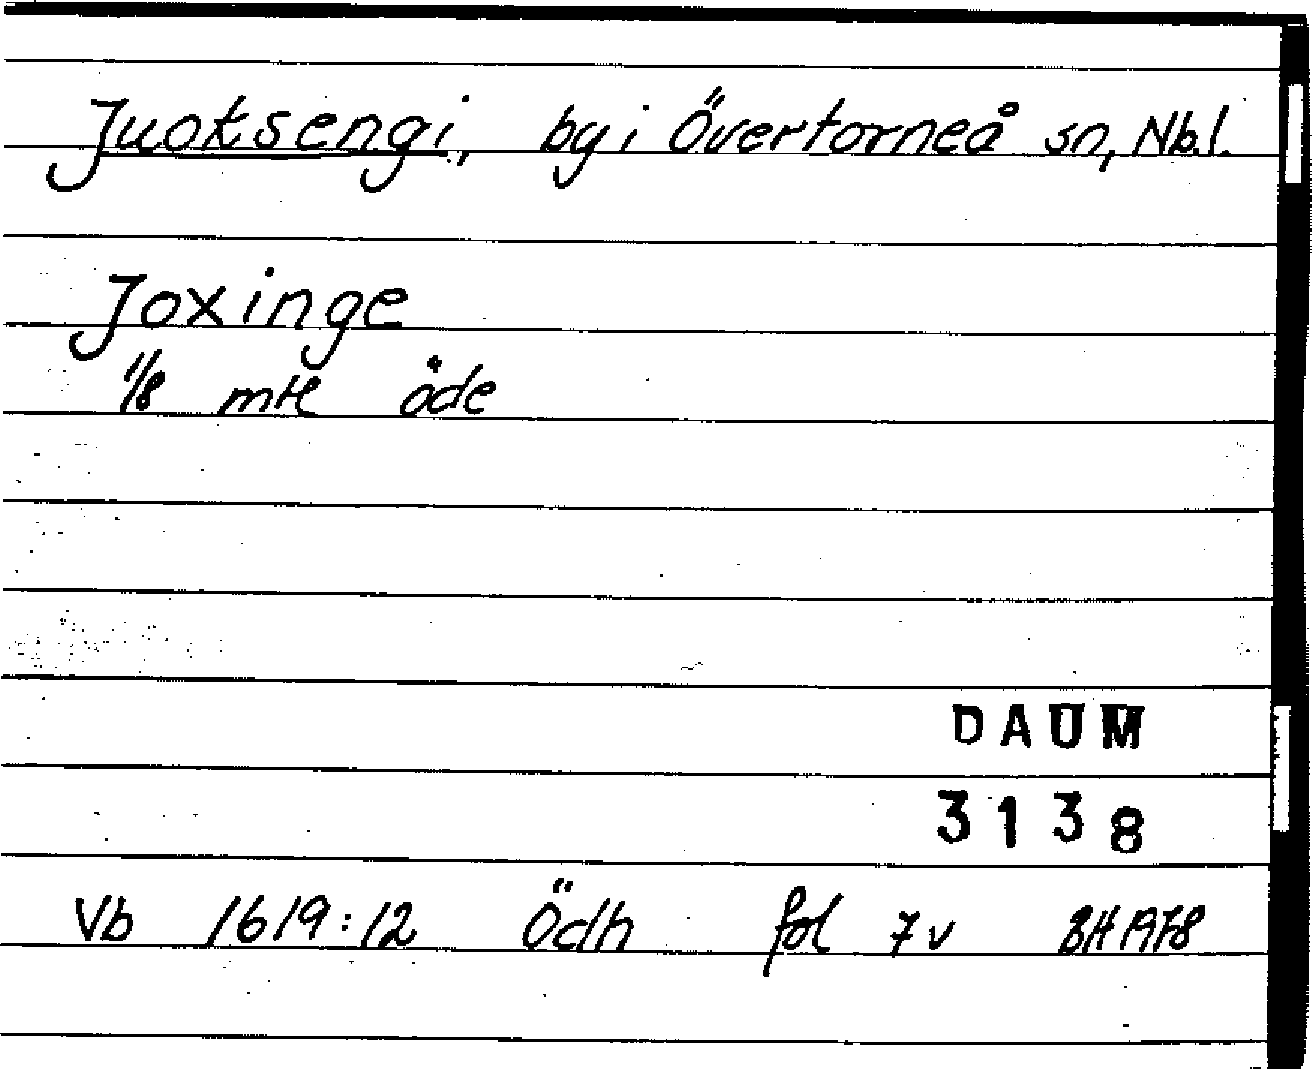 Juoksengi, by i Övertorneå sn, Nb.l.
Joxinge
1/8 mtl öde
DAUM
3138
Vb 1619:12 Ödh fol 7v BH 1978